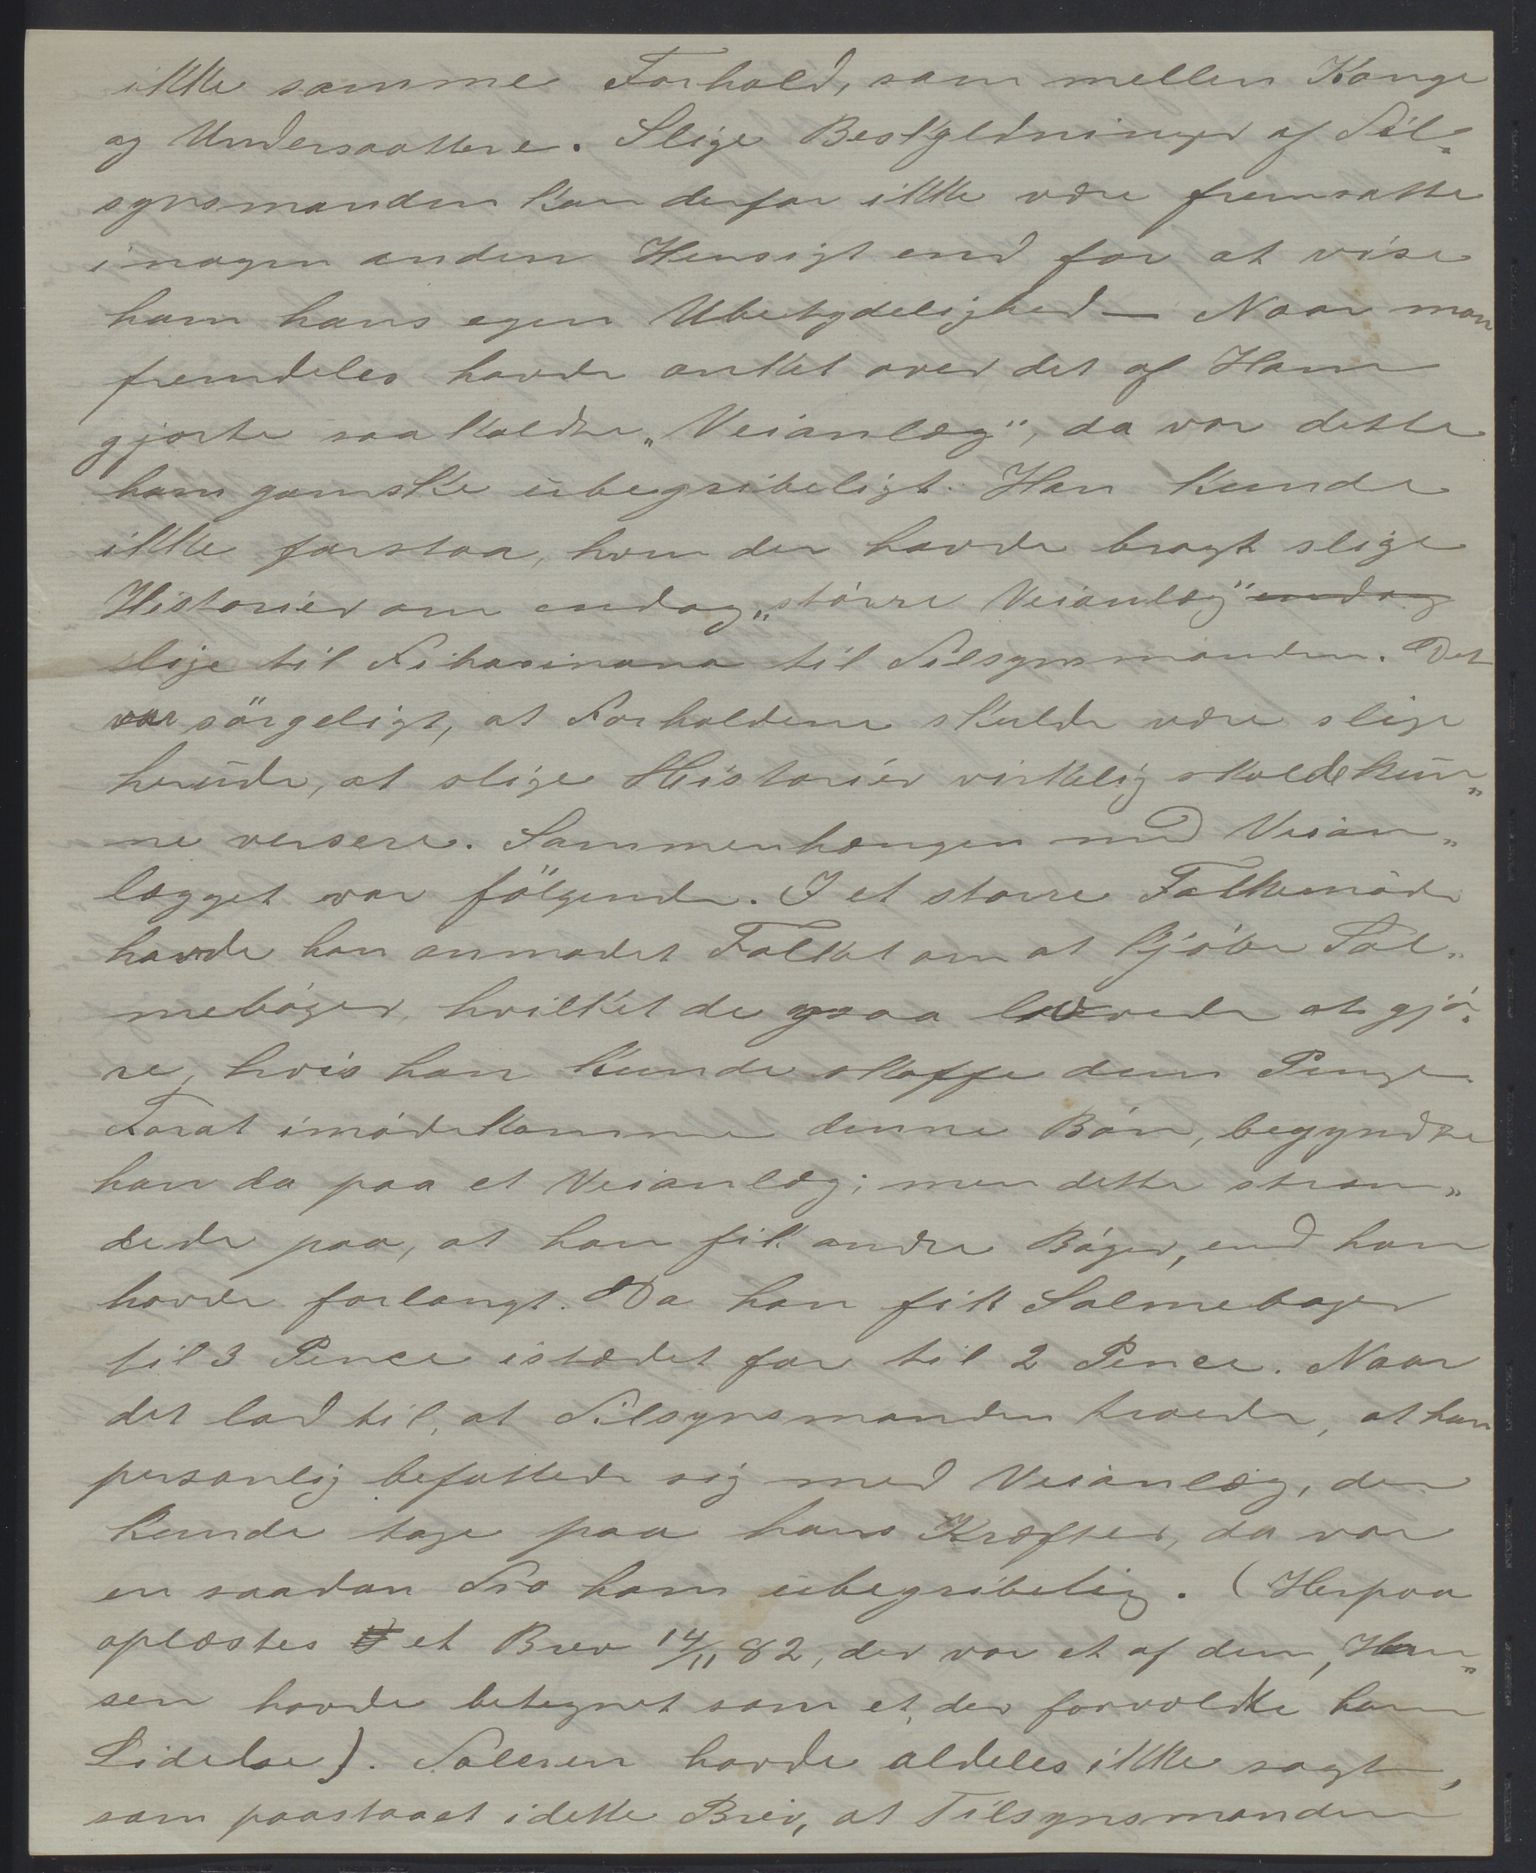 ikke samme Forhold, som mellem Konge
og Undersaattere. Slige Beskyldninger af Til„
synsmanden kan derfor ikke være fremsatte
i nogen anden Hensigt end for at vise
ham hans egen Ubetydelighed — Naar man
fremdeles havde anket over det af Ham
gjorte saakaldte „Veianlæg", da var dette
ham ganske ubegribeligt. Han kunde
ikke forstaa, hvem der havde bragt slige
Historier om endog „större Veianlæg" endog
slige til Fihasinana til Tilsynsmanden. Det
var sörgeligt, at Forholdene skulde være slige
herude, at slige Historier virkelig skulde kun„
ne versere. Sammenhængen med Veian„
lægget var fölgende. I et större Folkemöde
havde han anmodet Folket om at kjöbe Sal„
meböger, hvilket de ogsaa lovede at gjö„
re, hvis han kunde skaffe dem Penge.
Forat imödekomme denne Bön, begyndte
han da paa et Veianlæg; men dette stran„
dede paa, at han fik andre Böger, end han
havde forlangt. Da han fik Salmeboger
til 3 Pence istædet for til 2 Pence. Naar
det lod til, at Tilsynsmanden troede, at han
personlig befattede sig med Veianlæg, der
kunde tage paa hans Kræfter, da var
en saadan Tro ham ubegribelig. (Herpaa
oplæstes et Brev 14/11 82, der var et af dem, Han„
sen havde betegnet som et, der forvoldte ham
Lidelse). Taleren havde aldeles ikke sagt,
som paastaaet i dette Brev, at Tilsynsmanden